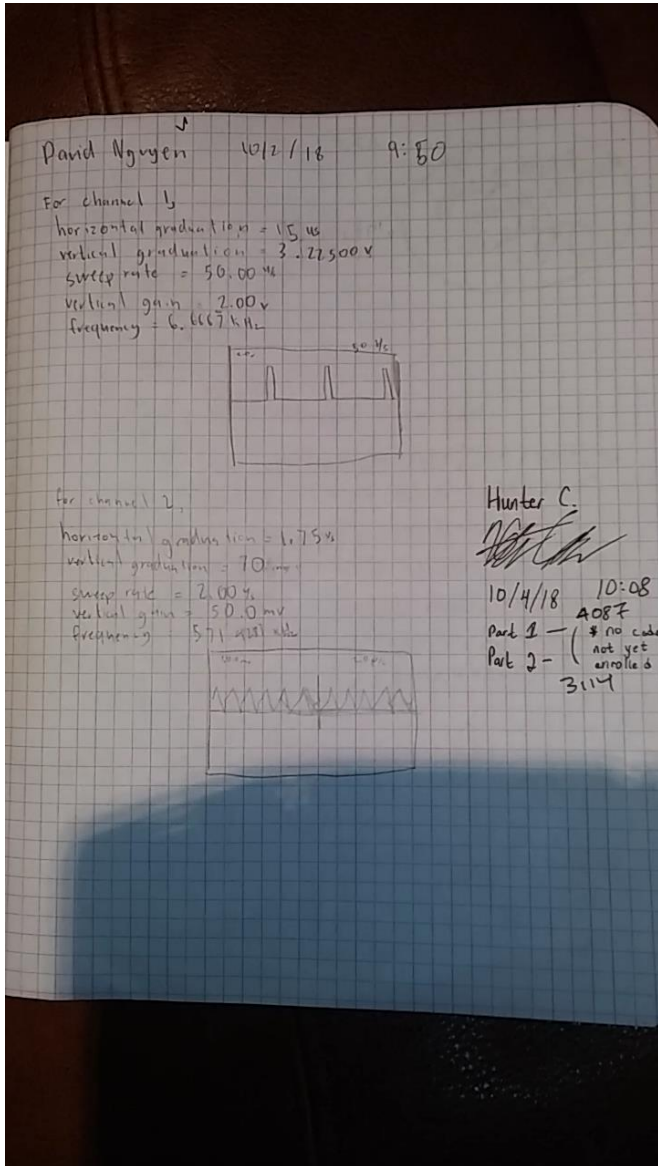 David Nguyen 10/2/18 9:50
For channel 1,
horizontal graduation = 15 us
vertical graduation = 3.22500 v
sweep rate = 50.00 us
vertical gain = 2.00 v
frequency = 6.6667 kHz
for channel 2,
horizontal graduation = 1.75 us
vertical graduation = 70
sweep rate = 2.00
vertical gain = 50.0 mv
frequency = 571
Hunter C.
10/4/18 10:08
4087
Part 1 - no code
Part 2 - not yet
enrolled
3.14